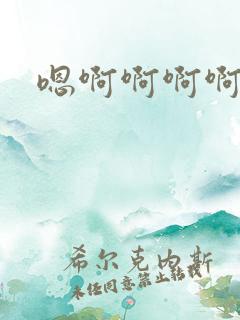 嗯啊啊啊啊
希尔克内斯
未经同意禁止转载